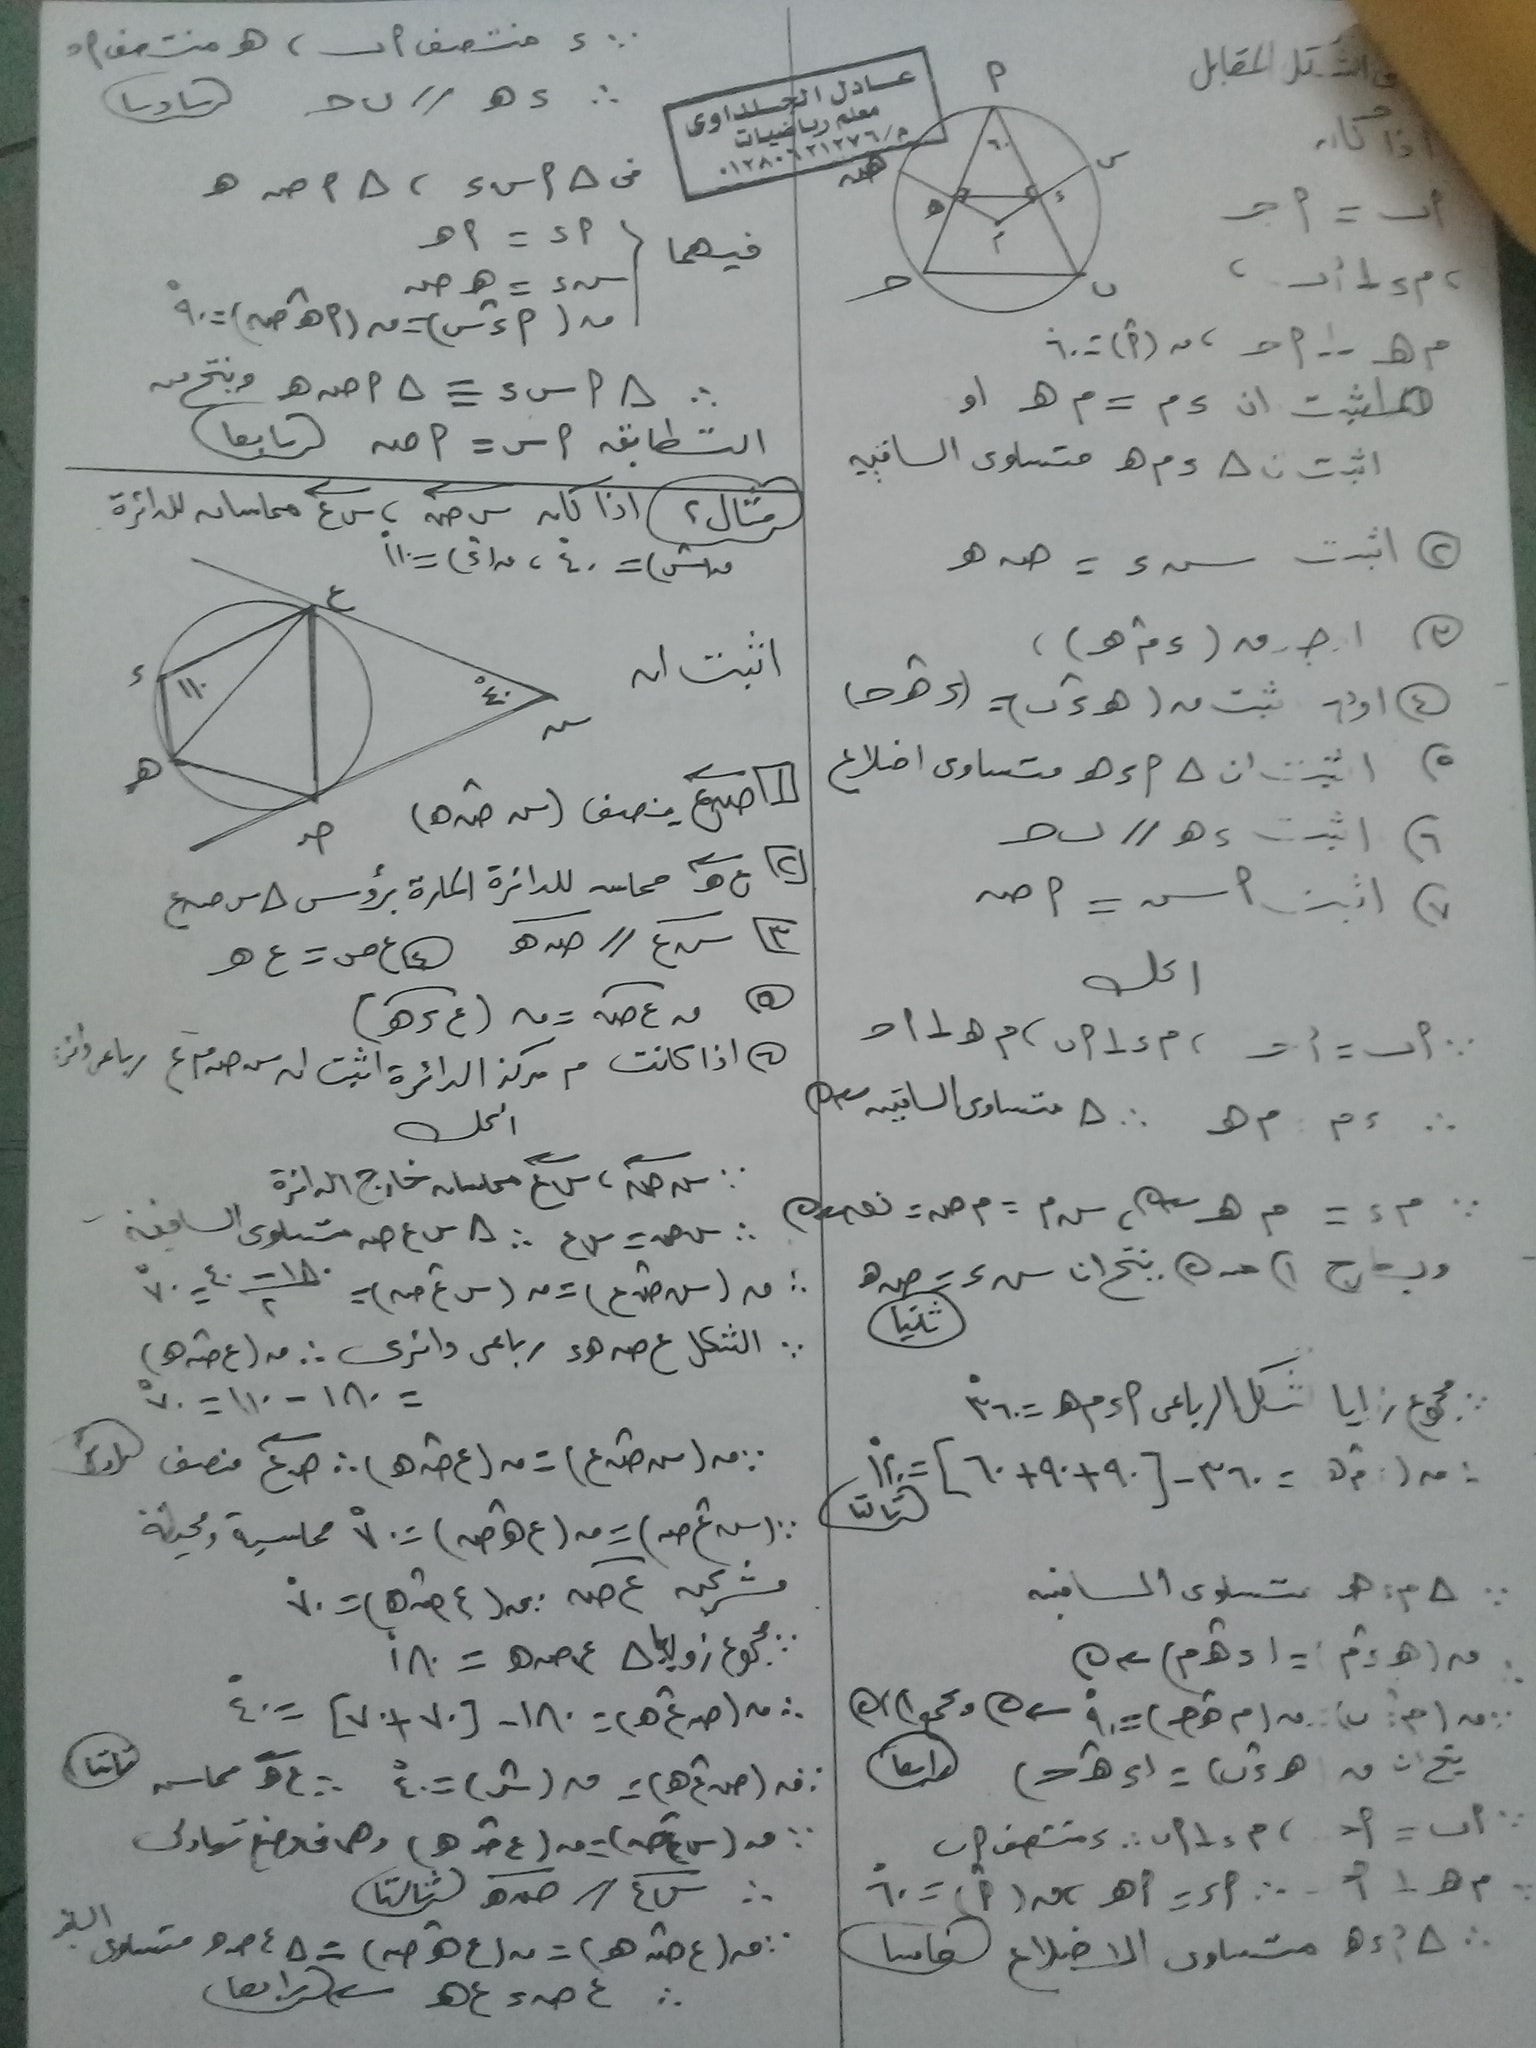 الشكل المقابل
اذا كان
أب = أح
، م ء ⊥ أب ،
م هـ ⊥ أح ، ن (أ) = ٦٠°
اثبت ان ء م = م هـ او
اثبت ن Δ ء م هـ متساوى الساقين
② اثبت س ء = ص هـ
③ اوجد ن (ء م هـ) ،
④ اثبت ن (هـ ء ب) = (ء هـ ح)
⑤ اثبت ان Δ أ ء هـ متساوى اضلاع
⑥ اثبت ء هـ // ب ح
⑦ اثبت أ س = أ ص
الحل
∵ أب = أح ، م ء ⊥ أب ، م هـ ⊥ أ ح
∴ ء م = م هـ ∴ Δ متساوى الساقين
∵ م ء = م هـ ، س م = م ص = نق
وبطرح ① من ② ينتج ان س ء = ص هـ
ثانيا
∵ مجموع زوايا الشكل الرباعى أ ء م هـ = ٣٦٠°
∴ ن (ء م هـ = ٣٦٠ - [٩٠ + ٩٠ + ٦٠] = ١٢٠°
ثالثا
∵ Δ م ء هـ متساوى الساقين
∴ ن (هـ ء م) = (ء هـ م)
∵ ن (م ء ب) = ن (م هـ ح) = ٩٠°
ينتج ان ن (هـ ء ب) = (ء هـ ح) رابعا
∵ أب = أح ، م ء ⊥ أب ∴ ء منتصف أب
م هـ ⊥ أح ∴ أء = أهـ ، ن (أ) = ٦٠°
∴ Δ أ ء هـ متساوى الاضلاع خامسا
∵ ء منتصف أب ، هـ منتصف أح
∴ ء هـ // ب ح سادسا
فى Δ أ س ء ، Δ أ ص هـ
فيهما
أء = أهـ
س ء = هـ ص
ن (أ ء س) = ن (أ هـ ص) = ٩٠°
∴ Δ أ س ء ≡ Δ أ ص هـ وينتج من
التطابق أ س = أ ص سابعا
مثال ٢ اذا كان س ص ، س ع مماسان للدائرة
ن (س) = ٤٠° ، ن (ء) = ١١٠°
اثبت ان
[1] ص ع ينصف (س ص هـ)
[2] ع هـ مماس للدائرة المارة برؤس Δ س ص ع
[3] س ع // ص هـ ④ ع ص = ع هـ
⑤ ن ع ص = ن (ع ء هـ)
⑥ اذا كانت م مركز الدائرة اثبت ان س ص م ع رباعى دائرى
الحل
∵ س ص ، س ع مماسان خارج الدائرة
∴ س ص = س ع ∴ Δ س ع ص متساوى الساقين
∴ ن (س ص ع) = ن (س ع ص) = ١٨٠ - ٤٠ / ٢ = ٧٠°
∵ الشكل ع ص هـ ء رباعى دائرى ∴ ن (ع ص هـ)
= ١٨٠ - ١١٠ = ٧٠°
∵ ن (س ص ع) = ن (ع ص هـ) ∴ ص ع منصف اولا
∵ (س ع ص) = ن (ع هـ ص) = ٧٠° مماسية ومحيطة
مشتركين ع ص ∵ ن (ع ص هـ) = ٧٠°
∵ مجموع زوايا Δ ع ص هـ = ١٨٠
∴ ن (ص ع هـ) = ١٨٠ - [٧٠ + ٧٠] = ٤٠°
∵ ن (ص ع هـ) = ن (س) = ٤٠° ∴ ع هـ مماس ثانيا
∵ ن (س ع ص) = ن (ع ص هـ) وهما فى وضع تبادلى
∴ س ع // ص هـ ثالثا
∵ ن (ع ص هـ) = ن (ع هـ ص) = Δ ع ص هـ متساوى
∴ ع ص = ع هـ رابعا
عادل الجلداوى
معلم رياضيات
م/٠١٢٨٠٦٢١٢٧٦
أ
٦٠
س
ص
هـ
ء
م
ح
ب
ع
ء
١١٠
٤٠°
س
هـ
ص